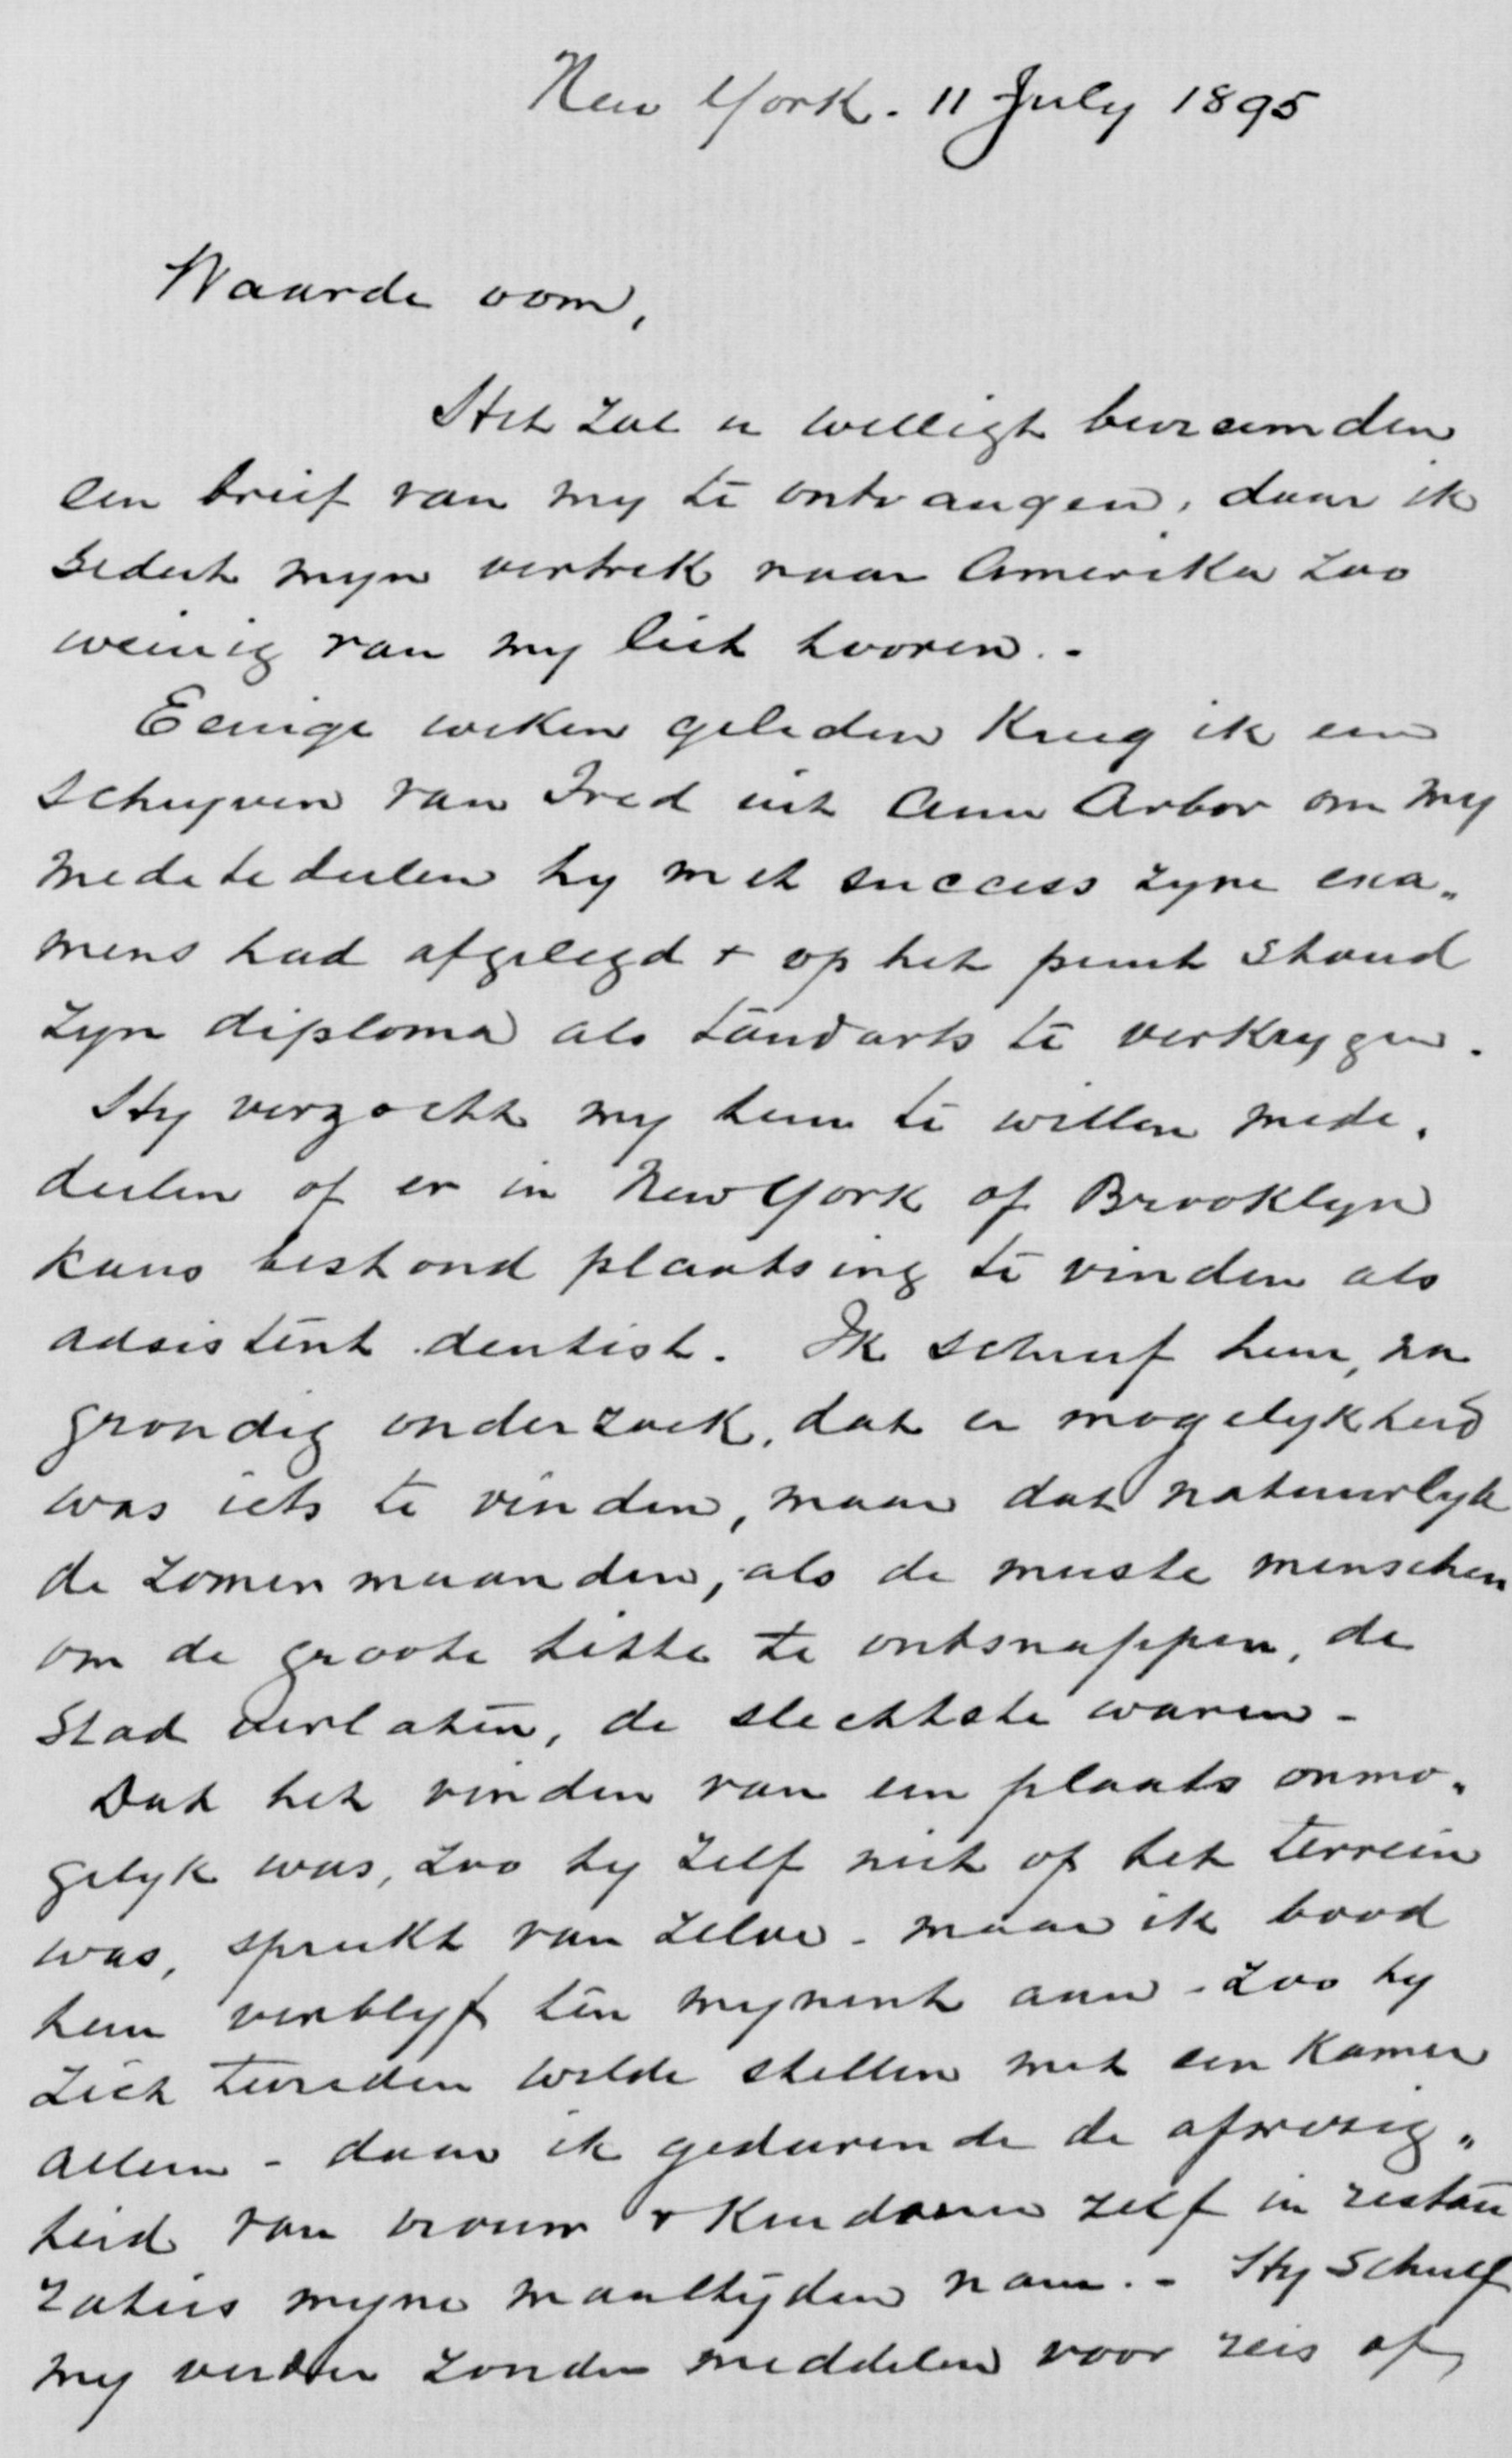 New York. 11 July 1895
Waarde oom,
Het zal u welligt bevreemden
een brief van my te ontvangen, daar ik
sedert myn vertrek naar Amerika zoo
weinig van my liet hooren. -
Eenige weken geleden kreeg ik een
schryven van Fred uit Ann Arbor om my
mede te deelen hy met success zyne exa„
mens had afgelegd + op het punt stond
zyn diploma als tandarts te verkrygen.
Hy verzocht my hem te willen mede„
deelen of er in New York of Brooklyn
kans bestond plaatsing te vinden als
adsistent dentist. Ik schreef hem, na
grondig onderzoek, dat er mogelykheid
was iets te vinden, maar dat natuurlyk
de zomermaanden, als de meeste menschen
om de groote hitte te ontsnappen, de
stad verlaten, de slechtste waren -
Dat het vinden van een plaats onmo„
gelyk was, zoo hy zelf niet op het terrein
was, spreekt van zelve - maar ik bood
hem verblyf ten mynent aan - zoo hy
zich tevreden wilde stellen met een kamer
alleen - daar ik gedurende de afwezig„
heid van vrouw + kinderen zelf in restau
raties myne maaltyden nam. - Hy schreef
my verder zonder middelen voor reis of